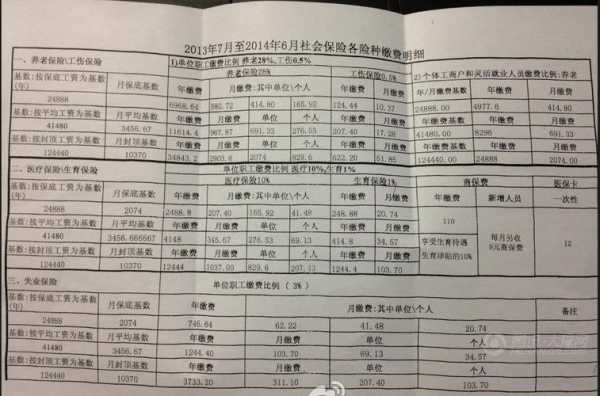 2013年7月至2014年6月社会保险各险种缴费明细
一、养老保险\工伤保险 1)单位职工缴费比例 养老28%,工伤0.5%
基数:按保底工资为基数(年) 月保底基数 养老保险28% 工伤保险0.5% 2)个体工商户和灵活就业人员缴费比例:养老
年缴费 月缴费:其中单位\个人 年缴费 月缴费 年/月缴费基数 年缴费 月缴费
24888 6968.64 580.72 414.80 165.92 124.44 10.37 24888.00 4977.6 414.80
基数:按平均工资为基数 月平均基数 年缴费 月缴费 单位 个人 年缴费 月缴费 年/月缴费基数 年缴费 月缴费
41480 3456.67 11614.4 967.87 691.33 276.53 207.40 17.28 41480.00 8296 691.33
基数:按封顶工资为基数 月封顶基数 年缴费 月缴费 单位 个人 年缴费 月缴费 年/月缴费基数 年缴费 月缴费
124440 10370 34843.2 2903.6 2074 829.6 622.20 51.85 124440.00 24888 2074.00
二、医疗保险\生育保险 单位职工缴费比例 医疗10%,生育1%
基数:按保底工资为基数(年) 月保底基数 医疗保险10% 生育保险1% 商保费 医保卡
年缴费 月缴费:其中单位\个人 年缴费 月缴费 年缴费 新增人员 一次性
24888 2074 2488.8 207.40 165.92 41.48 248.88 20.74
基数:按平均工资为基数 月平均基数 年缴费 月缴费 单位 个人 年缴费 月缴费 110
41480 3456.666667 4148 345.67 276.53 69.13 414.8 34.57 享受生育待遇 每月另收 12
基数:按封顶工资为基数 月封顶基数 年缴费 月缴费 单位 个人 年缴费 月缴费 生育津贴的10% 9元商保费
124440 10370 12444 1037.00 829.6 207.13 1244.4 103.70
三、失业保险 单位职工缴费比例 (3%)
基数:按保底工资为基数 月保底基数 年缴费 月缴费:其中单位\个人 备注
24888 2074 746.64 62.22 41.48 20.74
基数:按平均工资为基数 月平均基数 年缴费 月缴费 单位 个人
41480 3456.67 1244.40 103.70 69.13 34.57
基数:按封顶工资为基数 月封顶基数 年缴费 月缴费 单位 个人
124440 10370 3733.20 311.10 207.40 103.70